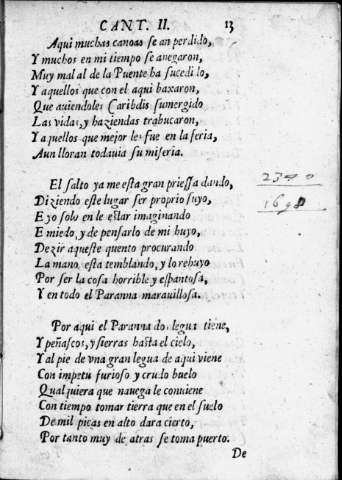 CANT. II. 13
Aqui muchas canoas se an perdido,
Y muchos en mi tiempo se anegaron,
Muy mal al de la Puente ha sucedi lo,
Y aquellos que con el aqui baxaron,
Que auiendoles Caribdis sumergido
Las vidas, y haziendas trabucaron,
Y aquellos que mejor les fue en la feria,
Aun lloran todauia su miseria.
El salto ya me esta gran priessa dando,
Diziendo este lugar ser proprio suyo,
E yo solo en le estar imaginando
E miedo, y de pensarlo de mi huyo,
Dezir aqueste quento procurando
La mano esta temblando, y lo rehuyo
Por ser la cosa horrible y espantosa,
Y en todo el Paranna marauillosa.
2390
1698
Por aqui el Paranna dos legua tiene,
Y peñascos, y sierras hasta el cielo,
Y al pie de vna gran legua de aqui viene
Con impetu furioso y crudo buelo
Qualquiera que nauega le conuiene
Con tiempo tomar tierra que en el suelo
De mil picas en alto dara cierto,
Por tanto muy de atras se toma puerto.
De